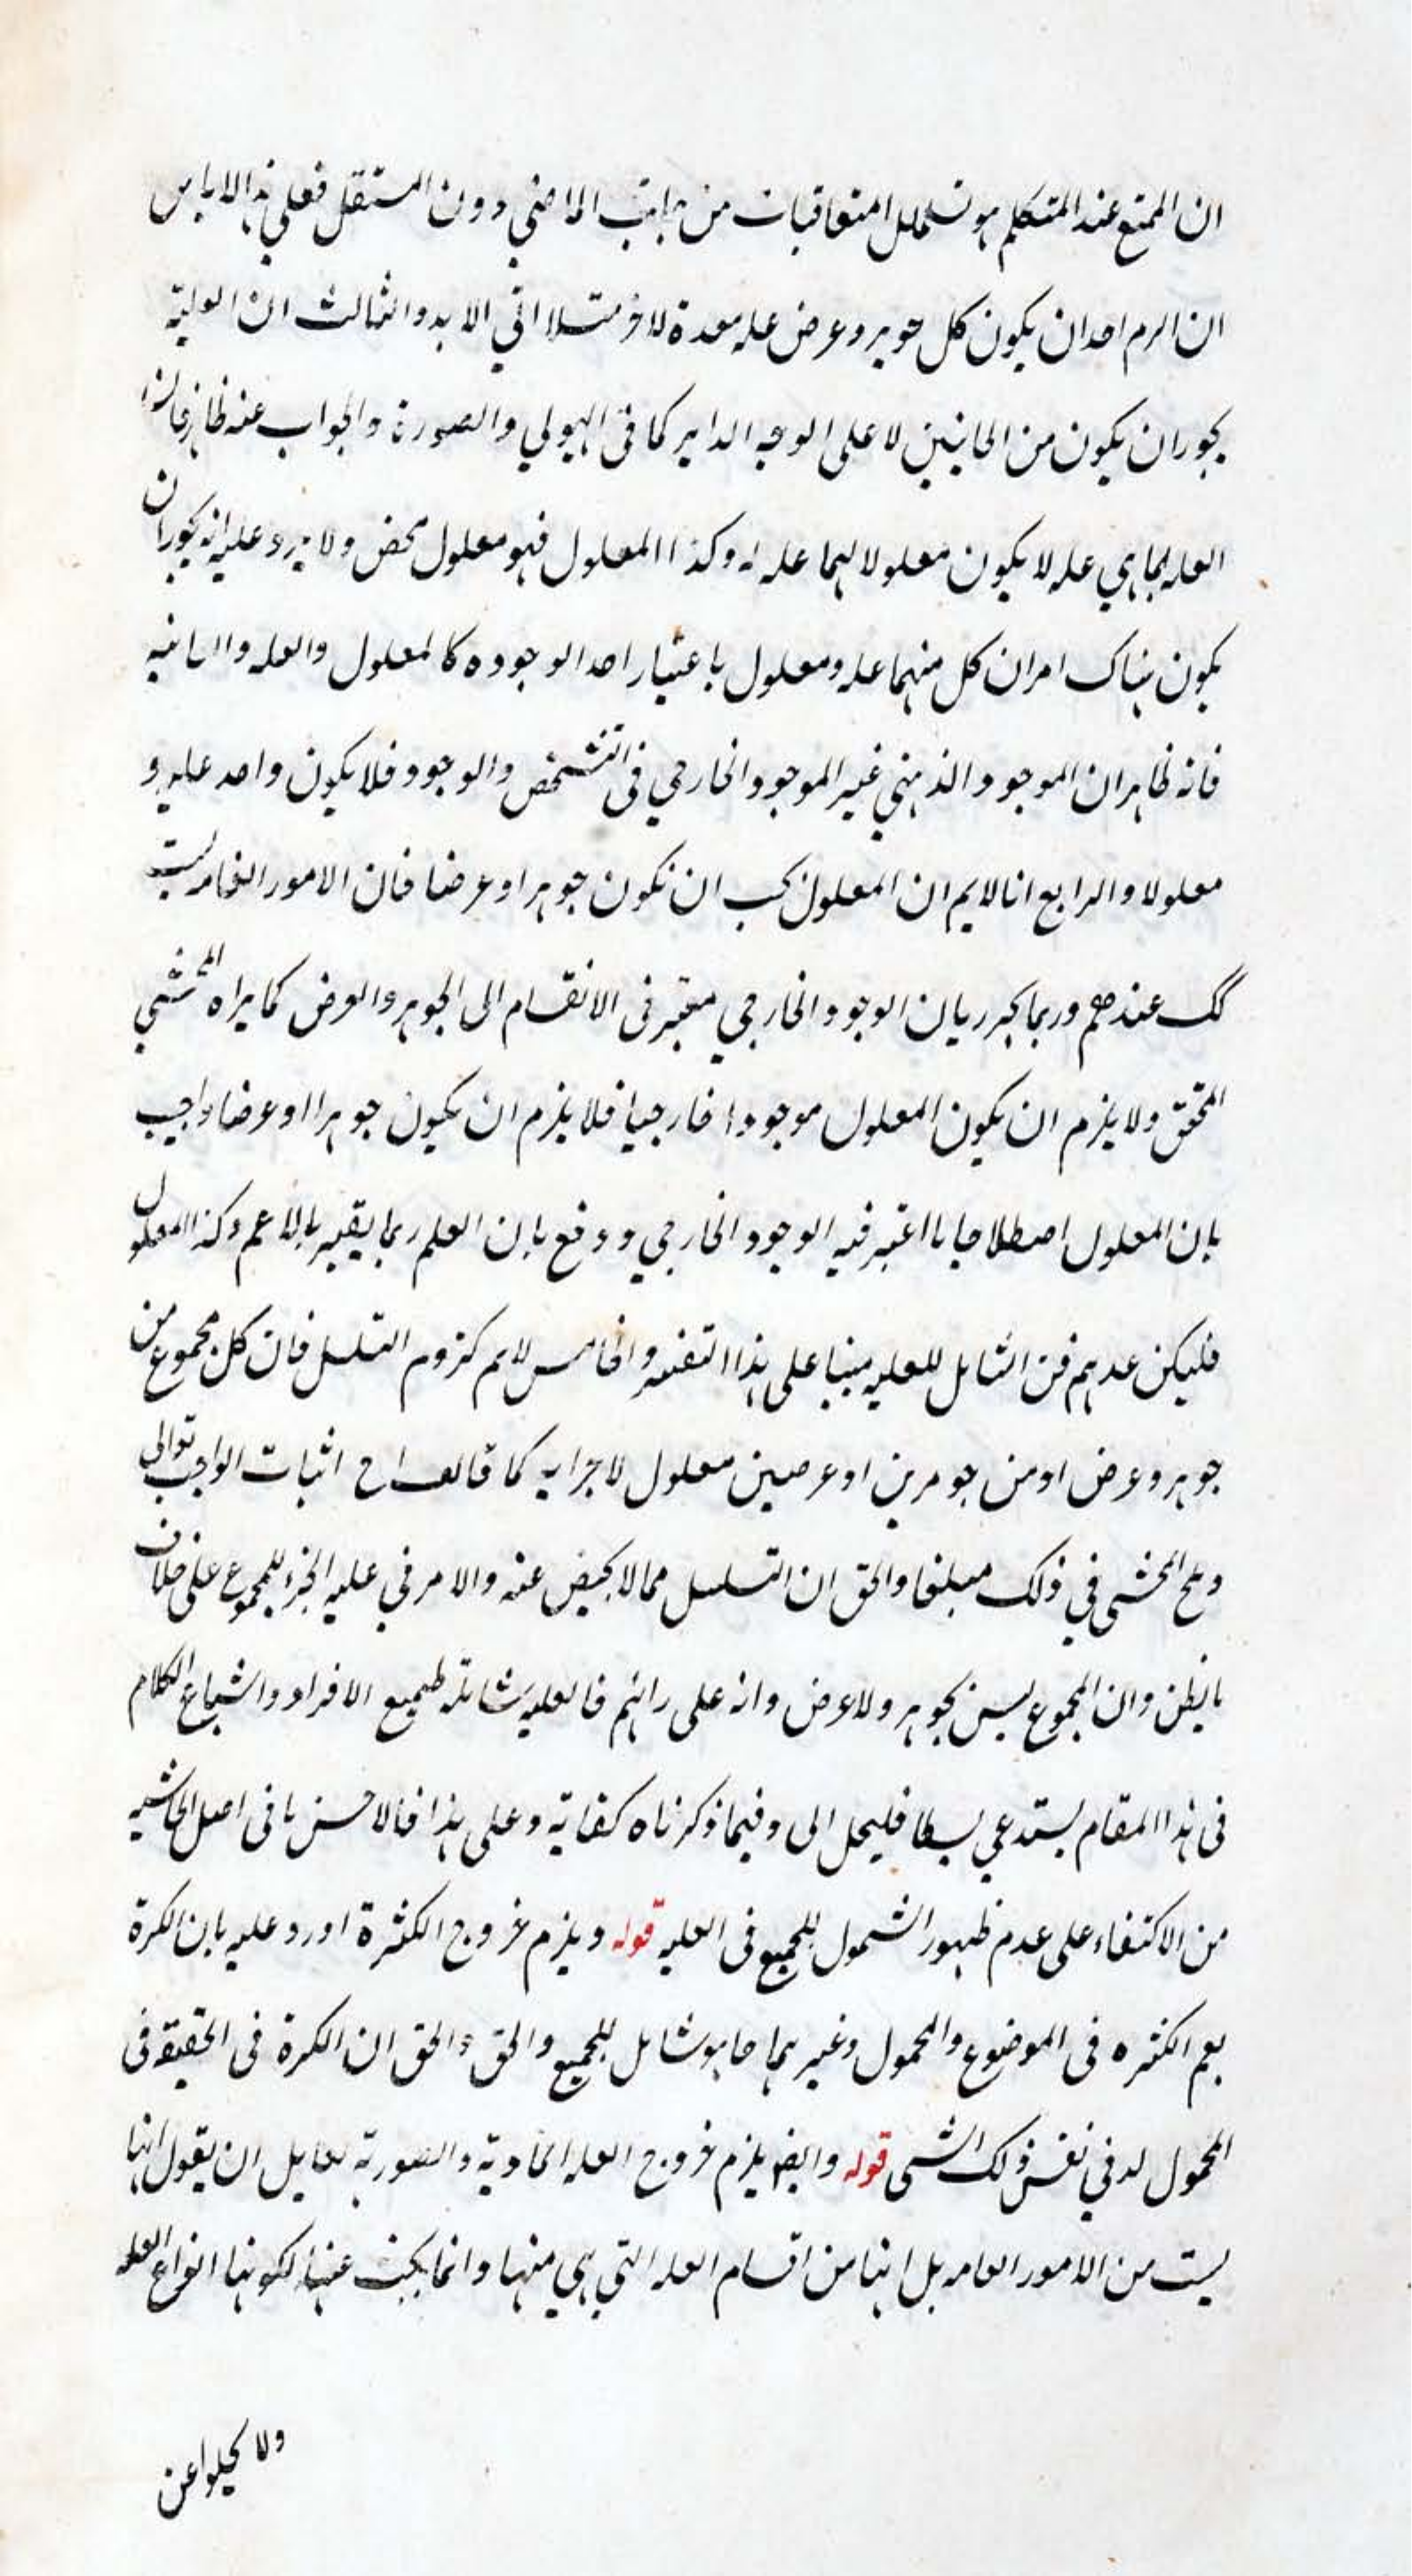 ان الممتنع عند المتكلم هو تسلسل المتعاقبات من جانب الماضي دون المستقبل فعلي هذا لا باس
ان الزم احد ان يكون كل جوهر وعرض عله معدة لاخر مثلا الي الابد والثالث ان العلية
يجوز ان يكون من الجانبين لا علي الوجه الداير كما في الهيولي والصورة والجواب عنه ظاهر فان
العله بما هي عله لا يكون معلولا لهما عله له وكذا المعلول فهو معلول محض ولا يرد عليه انه يجوز ان
يكون هناك امران كل منهما عله ومعلول باعتبار احد الوجوده كالمعلول والعله والغائيه
فانه ظاهر ان الموجود الذهني غير الموجود الخارجي في التشخص والوجود فلا يكون واحد عله و
معلولا والرابع انا لا نم ان المعلول يجب ان تكون جوهرا او عرضا فان الامور العامه ليست
كك عندهم وربما يجبر بان الوجود الخارجي معتبر في الانقسام الي الجوهر والعرض كما يراه المحشي
المحقق ولا يلزم ان يكون المعلول موجودا خارجيا فلا يلزم ان يكون جوهرا او عرضا واجيب
بان المعلول اصطلاحا ما اعتبر فيه الوجود الخارجي ودفع بان العلم ربما يقيد بالاعم وكذا المعلول
فليكن عدهم من الشامل للعليه مبنيا علي هذا التفسير والخامس لا نم لزوم التسلسل فان كل مجموع من
جوهر وعرض او من جوهرين او عرضين معلول لاجزايه كما قالف اح اثبات الواجب تعالي
والمحشي في ذلك مبلغا والحق ان التسلسل مما لا محيص عنه والامر في عليه الجزء للمجموع علي خلاف
ما يظن وان المجموع ليس بجوهر ولا عرض وانه علي رايهم فالعليه شاملة لجميع الافراد واشباع الكلام
في هذا المقام يستدعي بسطا فليحل الي وفيما ذكرناه كفاية وعلي هذا فالاحسن ما في اصل الحاشيه
من الاكتفاء علي عدم ظهور الشمول للجميع في العليه قوله ويلزم خروج الكثرة اورد عليه بان الكثرة
يعم الكثره في الموضوع والمحمول وغيرهما ما هو شامل للجميع والحق والحق ان الكثرة في الحقيقة في
المحمول له في نفس ذلك الشي قوله وايضا يلزم خروج العله المادية والصورية لقايل ان يقول انها
ليست من الامور العامه بل انها من اقسام العله التي هي منها وانما يبحث عنها لكونها انواع العله
ولا يخلوا عن